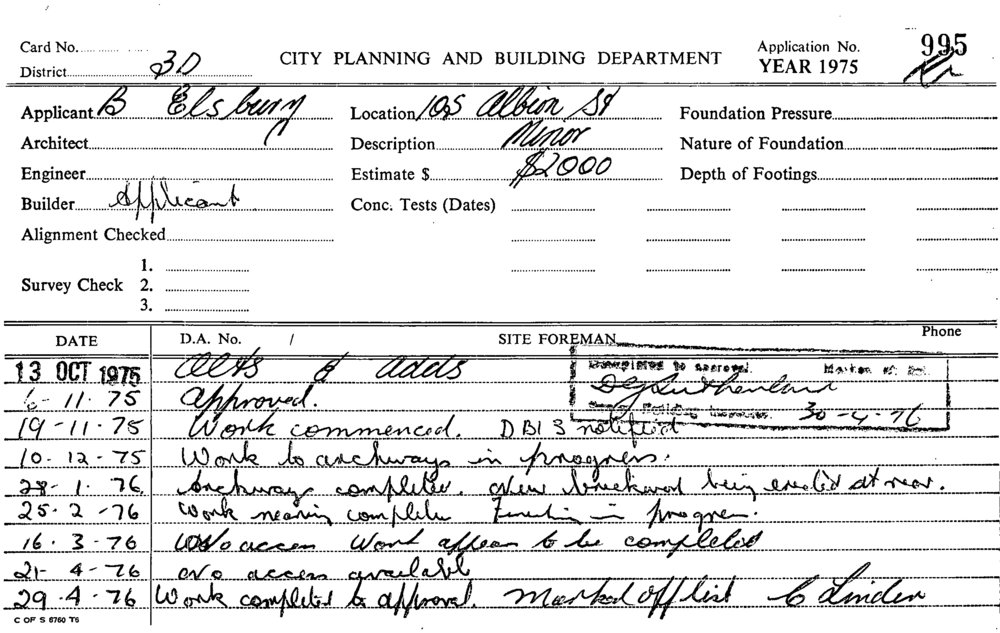 Card No.
District 3D
CITY PLANNING AND BUILDING DEPARTMENT
Application No. 995
YEAR 1975
Applicant B Elsbury
Location 105 Albion St
Foundation Pressure
Architect
Description Minor
Nature of Foundation
Engineer
Estimate $ $2000
Depth of Footings
Builder Applicant
Conc. Tests (Dates)
Alignment Checked
Survey Check
1.
2.
3.
DATE
D.A. No. /
SITE FOREMAN
Phone
13 OCT 1975 Alts & Adds
Completed to approval. Marked off list.
DG Sutherland
Building Inspector. 30-4-76
6-11-75 Approved.
19-11-75 Work commenced. DBI 3 notified
10-12-75 Work to archways in progress.
28-1-76 Archways completed. New brickwork being erected at rear.
25-2-76 Work nearing complete in progress.
16-3-76 No access Work appears to be completed
21-4-76 No access available
29-4-76 Work completed to approval. Marked off list C Linden
C OF S 6760 T6